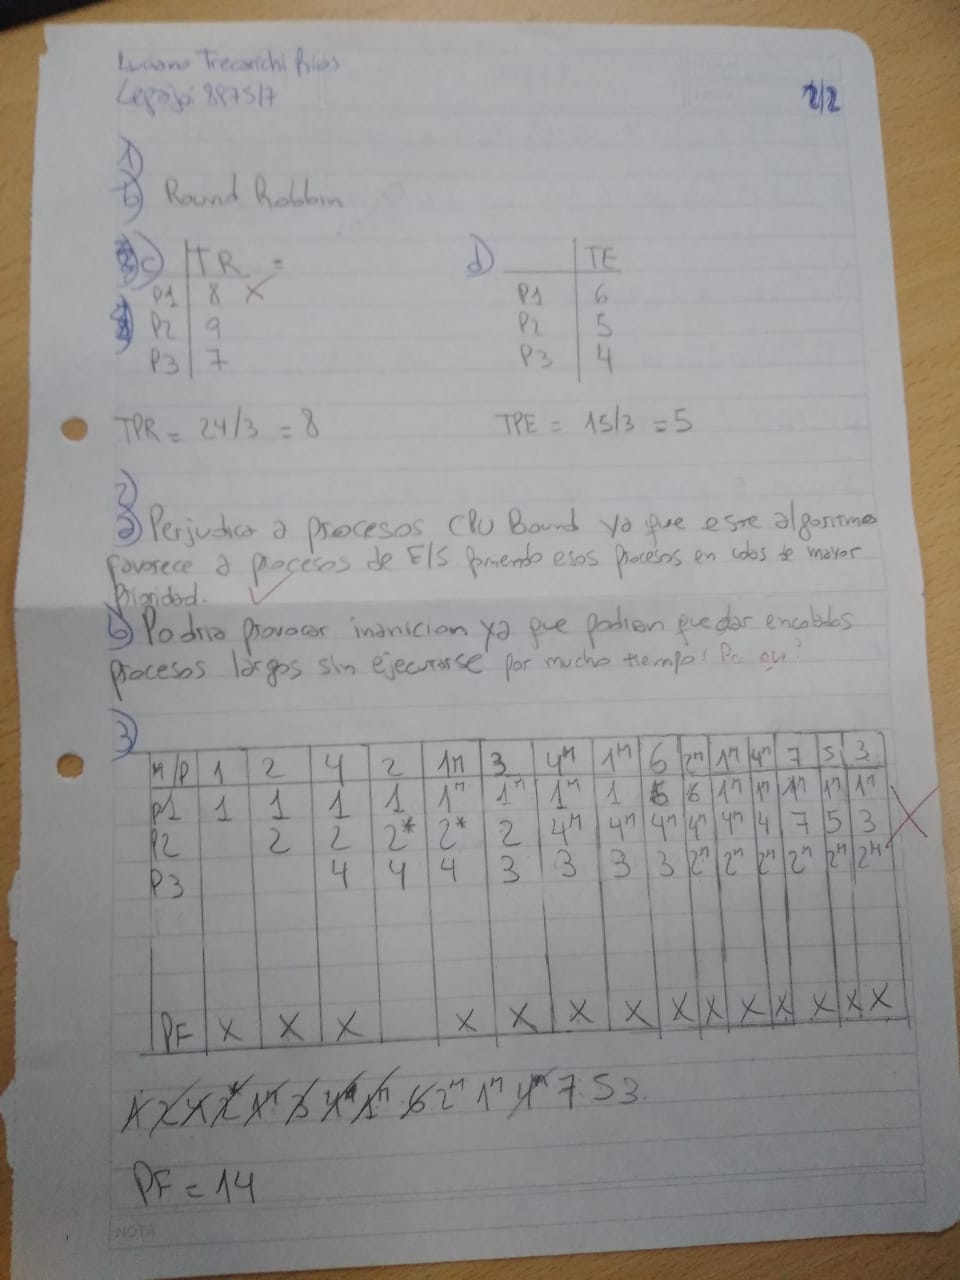 Luciano Trecarichi Rios
Legajo: 8975/7
2/2
1)
b) Round Robbin
c) TR =
P1 8 X
P2 9
P3 7
d) TE
P1 6
P2 5
P3 4
TPR = 24/3 = 8
TPE = 15/3 = 5
2)
a) Perjudica a procesos CPU Bound ya que este algoritmo
favorece a procesos de E/S poniendo esos procesos en colas de mayor
Prioridad.
b) Podria provocar inanicion ya que podrian quedar encolados
procesos largos sin ejecutarse por mucho tiempo: Por que?
3)
M/P 1 2 4 2 1ᵐ 3 4ᵐ 1ᵐ 6 2ᵐ 1ᵐ 4ᵐ 7 5 3
P1 1 1 1 1 1ᵐ 1ᵐ 1ᵐ 1 6 6 1ᵐ 1ᵐ 1ᵐ 1ᵐ 1ᵐ
P2 2 2 2* 2* 2 4ᵐ 4ᵐ 4ᵐ 4ᵐ 4ᵐ 4 7 5 3
P3 4 4 4 3 3 3 3 2ᵐ 2ᵐ 2ᵐ 2ᵐ 2ᵐ 2ᵐ
PF X X X X X X X X X X X X X X
1 2 4 2* 1ᵐ 3 4ᵐ 1ᵐ 6 2ᵐ 1ᵐ 4ᵐ 7 5 3.
PF = 14
NOTA